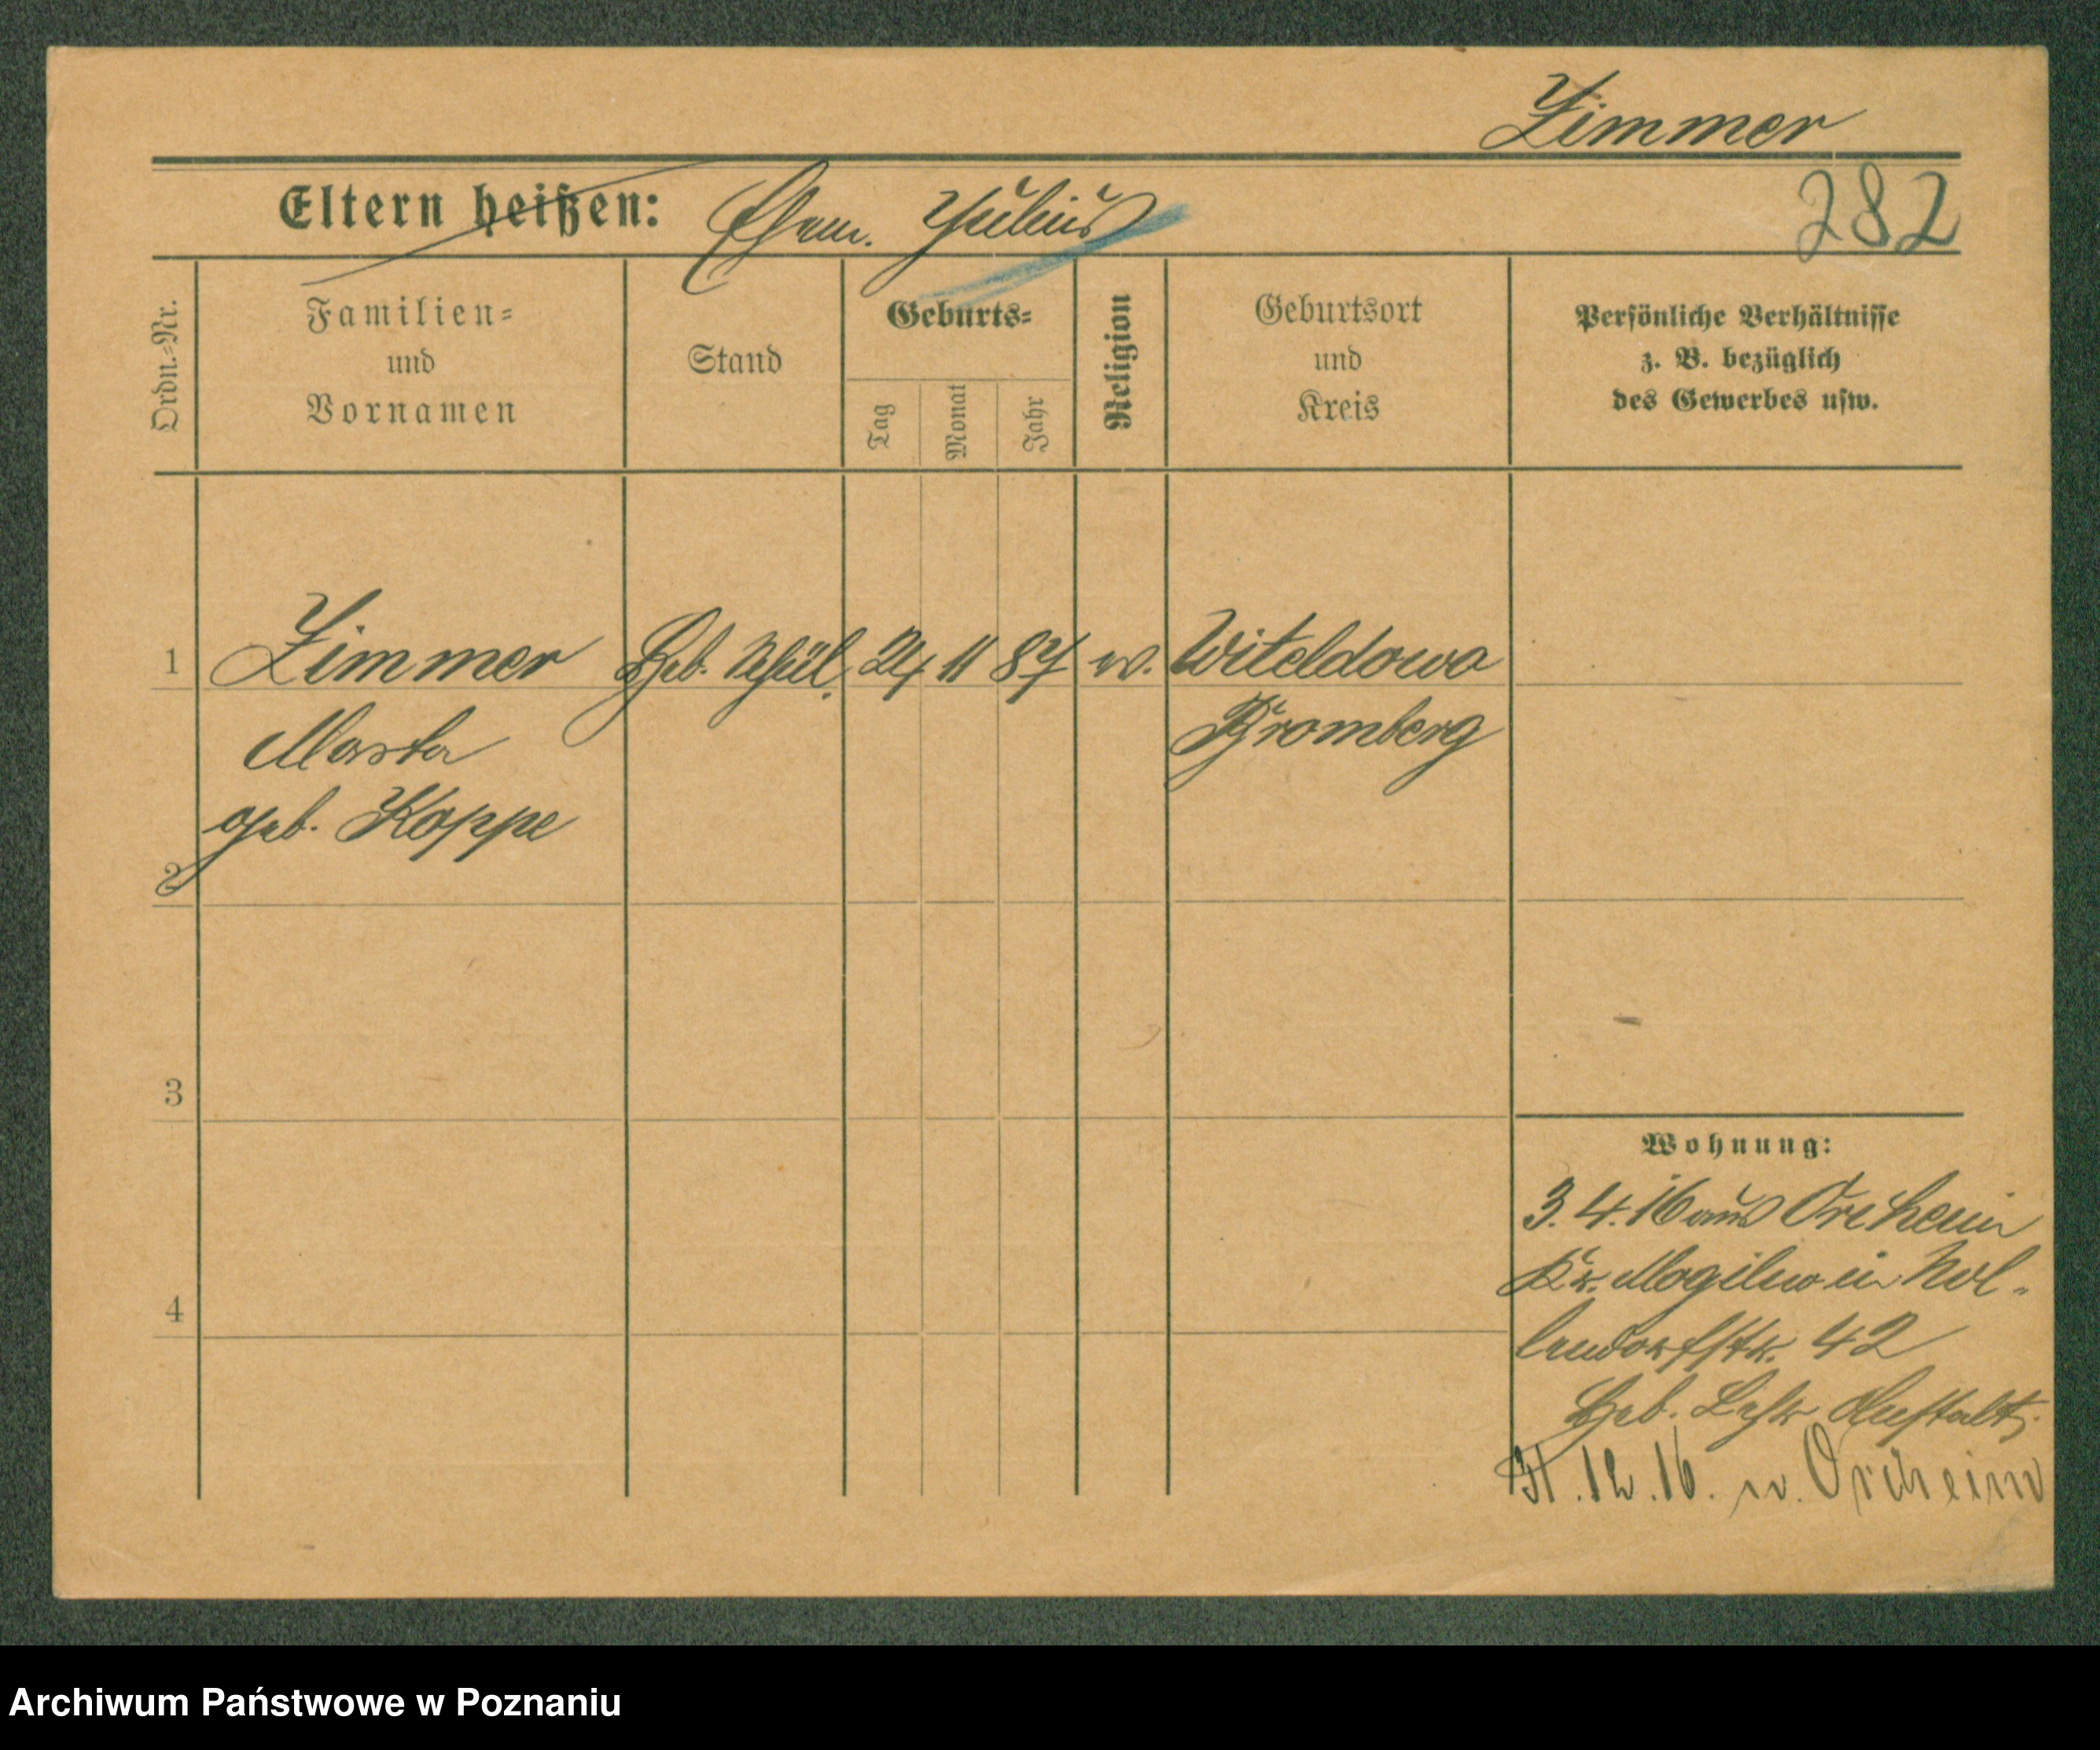 Zimmer
Eltern heißen: Ehem. Julius
282
Ordn.=Nr.
Familien=
und
Vornamen
Stand
Geburts=
Tag
Monat
Jahr
Religion
Geburtsort
und
Kreis
Persönliche Verhältnisse
z. B. bezüglich
des Gewerbes usw.
1 Zimmer Heb. Schül. 24 11 87 ev. Witeldowo
Marta Bromberg
geb. Koppe
2
3
Wohnung:
3. 4. 16 aus Orchheim
Kr. Mogilno in Nol-
4
lendorfstr. 42
Heb. Lehr Anstalt
31.12.16. n. Orchheim
Archiwum Państwowe w Poznaniu